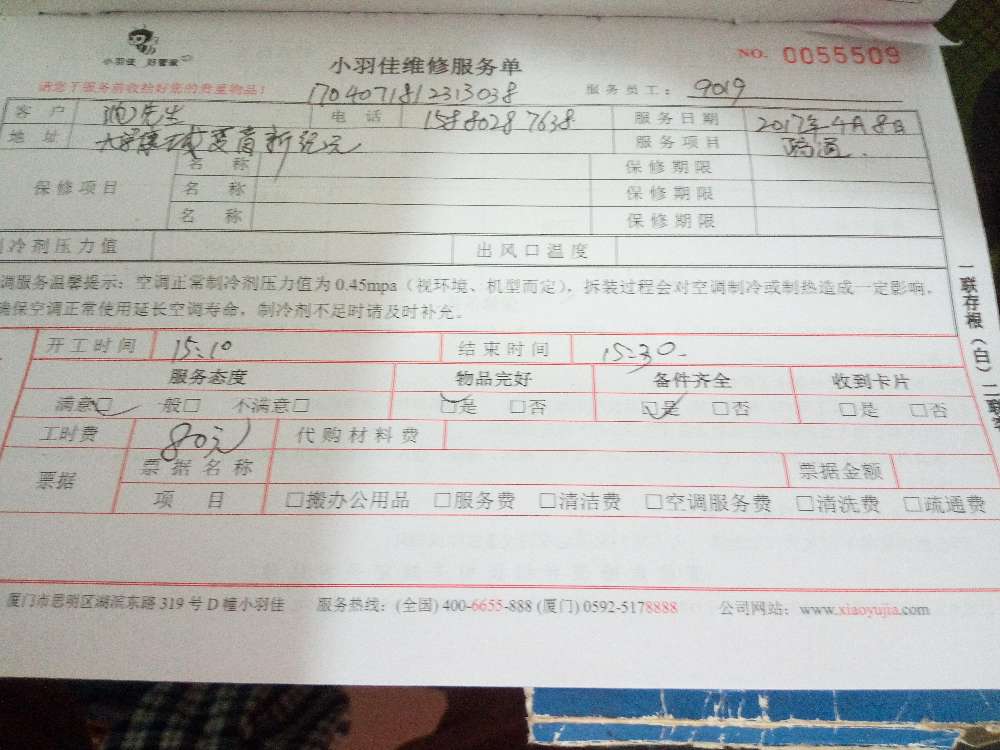 小羽佳 好管家
小羽佳维修服务单
NO. 0055509
请您于服务前收拾好您的贵重物品！
1704071812313038
服务员工： 9019
客户 先生 电话 15880287638 服务日期 2017年4月8日
地址 新纪元 服务项目 疏通
保修项目 名称 保修期限
名称 保修期限
名称 保修期限
冷剂压力值 出风口温度
调服务温馨提示：空调正常制冷剂压力值为 0.45mpa（视环境、机型而定），拆装过程会对空调制冷或制热造成一定影响，
确保空调正常使用延长空调寿命，制冷剂不足时请及时补充。
开工时间 15:10 结束时间 15:30
服务态度 物品完好 备件齐全 收到卡片
满意□ 一般□ 不满意□ □是 □否 □是 □否 □是 □否
工时费 80元 代购材料费
票据 票据名称 票据金额
项目 □搬办公用品 □服务费 □清洁费 □空调服务费 □清洗费 □疏通费
厦门市思明区湖滨东路 319 号 D 幢小羽佳 服务热线：(全国) 400-6655-888 (厦门) 0592-5178888 公司网站：www.xiaoyujia.com
一联存根（白）二联